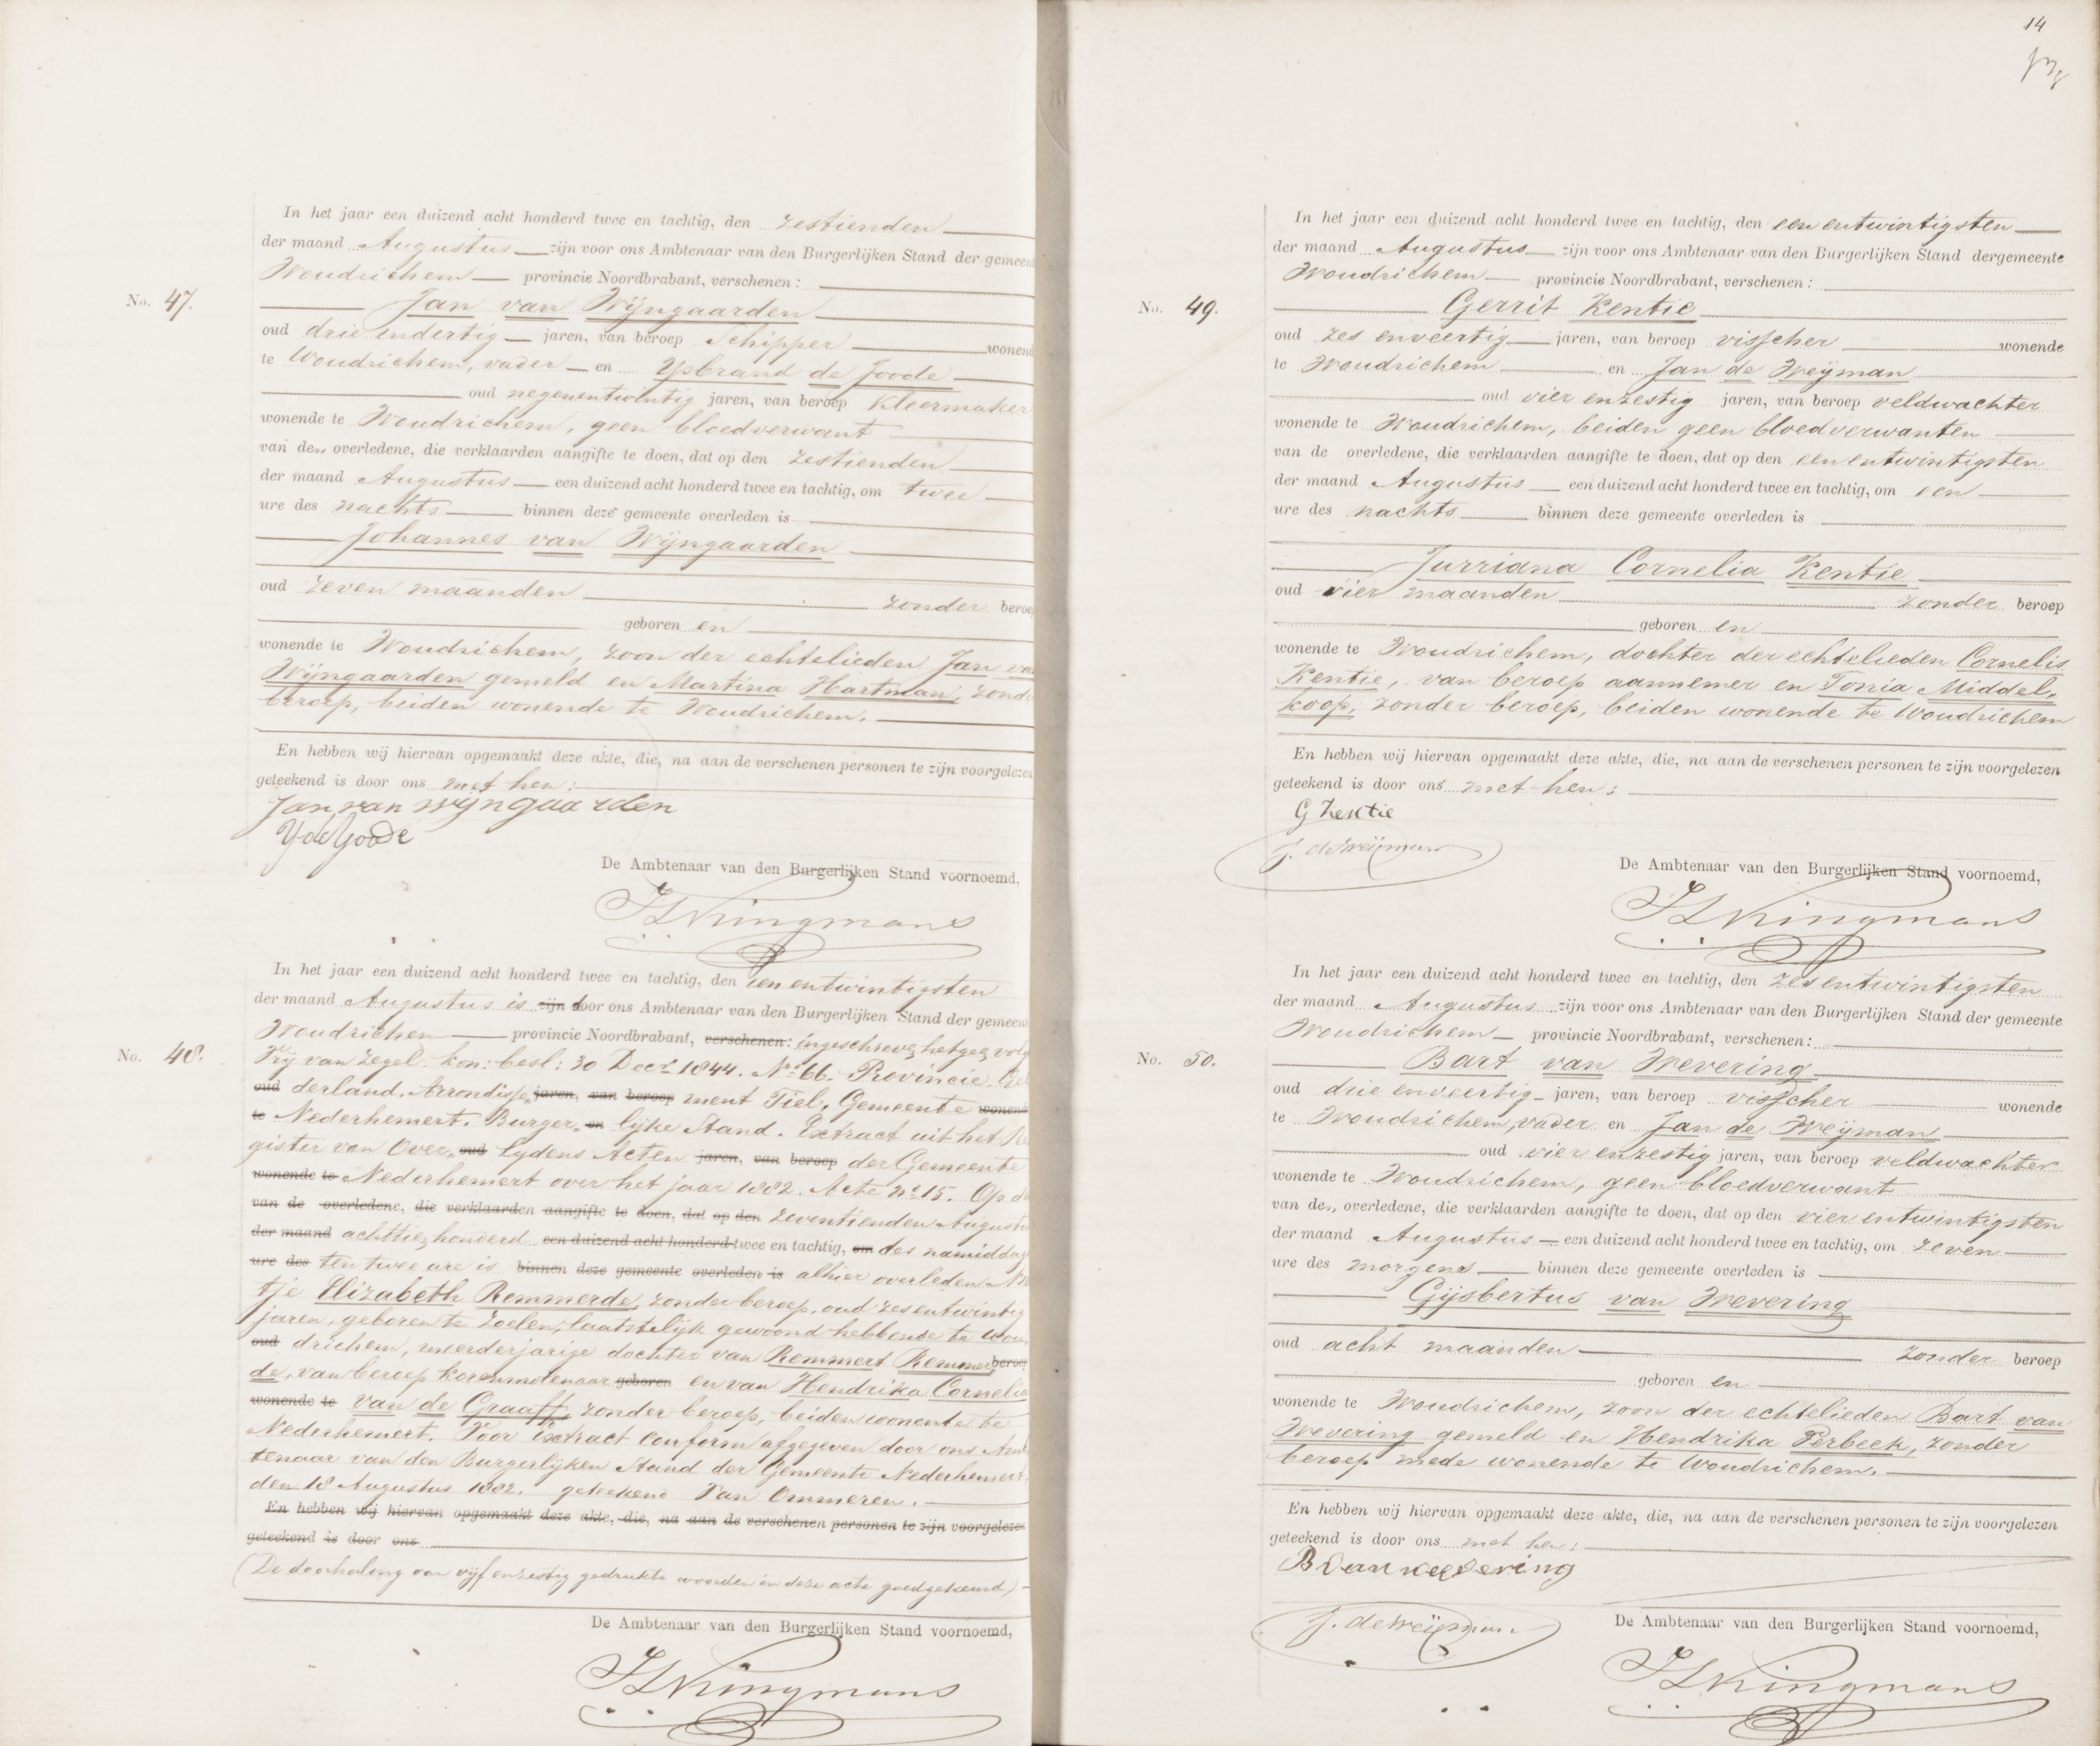 In het jaar een duizend acht honderd twee en tachtig, den zestienden
der maand Augustus zijn voor ons Ambtenaar van den Burgerlijken Stand der gemeen
Woudrichem provincie Noordbrabant, verschenen:
No. 47. Jan van Wijngaarden
oud drie en dertig jaren, van beroep Schipper wonend
te Woudrichem, vader en Ysbrand de Joode
oud negenentwintig jaren, van beroep Kleermaker
wonende te Woudrichem, geen bloedverwant
van den overledene, die verklaarden aangifte te doen, dat op den zestienden
der maand Augustus een duizend acht honderd twee en tachtig, om twee
ure des nachts binnen deze gemeente overleden is
Johannes van Wijngaarden
oud zeven maanden zonder beroe
geboren en
wonende te Woudrichem, zoon der echtelieden Jan va
Wijngaarden gemeld en Martina Hartman, zond
beroep, beiden wonende te Woudrichem.
En hebben wij hiervan opgemaakt deze akte, die, na aan de verschenen personen te zijn voorgelezen
geteekend is door ons met hen:
Jan van Wijngaarden
Y de Joode
De Ambtenaar van den Burgerlijken Stand voornoemd,
In het jaar een duizend acht honderd twee en tachtig, den een entwintigsten
der maand Augustus is zijn door ons Ambtenaar van den Burgerlijken Stand der gemeen
Woudrichem provincie Noordbrabant, verschenen: ingeschreven hetgeen volg
No. 48. Vrij van zegel kon: besl: 30 Decr 1844. No 66. Provincie Gel
oud derland. Arrondisse jaren, van beroep ment Tiel, Gemeente wonend
te Nederhemert. Burger en lijke Stand. Extract uit het Re
gister van Over oud lydens Acten jaren, van beroep der Gemeente
wonende te Nederhemert over het jaar 1882. Acte no 15. Op d
van de overledene, die verklaarden aangifte te doen, dat op den zeventienden Augustu
der maand achttienhonderd een duizend acht honderd twee en tachtig, om des namiddag
ure des ten twee ure is binnen deze gemeente overleden is alhier overleden
tje Elizabeth Remmerde, zonder beroep, oud zesentwintig
jaren, geboren te Zoelen, laatstelijk gewoond hebbende te Wou
oud drichem, meerderjarige dochter van Remmert Remmer beroep
de, van beroep korenmolenaar geboren en van Hendrika Cornelia
wonende te van de Graaff, zonder beroep, beiden wonende te
Nederhemert. Voor Extract Conform afgegeven door ons Amb
tenaar van den Burgerlijken Stand der Gemeente Nederhemert
den 18 Augustus 1882. geteekend Van Ommeren.
En hebben wij hiervan opgemaakt deze akte, die, na aan de verschenen personen te zijn voorgelezen
geteekend is door ons
(De doorhaling van vijf en zestig gedrukte woorden in deze acte goedgekeurd)
De Ambtenaar van den Burgerlijken Stand voornoemd,
14
In het jaar een duizend acht honderd twee en tachtig, den een entwintigsten
der maand Augustus zijn voor ons Ambtenaar van den Burgerlijken Stand dergemeente
Woudrichem provincie Noordbrabant, verschenen:
No. 49. Gerrit Kentie
oud zes enveertig jaren, van beroep visscher wonende
te Woudrichem en Jan de Weijman
oud vier enzestig jaren, van beroep veldwachter
wonende te Woudrichem, beiden geen bloedverwanten
van de overledene, die verklaarden aangifte te doen, dat op den een entwintigsten
der maand Augustus een duizend acht honderd twee en tachtig, om een
ure des nachts binnen deze gemeente overleden is
Jurriana Cornelia Kentie
oud vier maanden zonder beroep
geboren en
wonende te Woudrichem, dochter der echtelieden Cornelis
Kentie, van beroep aannemer en Tonia Middel-
koop, zonder beroep, beiden wonende te Woudrichem
En hebben wij hiervan opgemaakt deze akte, die, na aan de verschenen personen te zijn voorgelezen
geteekend is door ons met hen:
G Kentie
J. de Weijman
De Ambtenaar van den Burgerlijken Stand voornoemd,
In het jaar een duizend acht honderd twee en tachtig, den zes entwintigsten
der maand Augustus zijn voor ons Ambtenaar van den Burgerlijken Stand der gemeente
Woudrichem provincie Noordbrabant, verschenen:
No. 50. Bart van Wevering
oud drie enveertig jaren, van beroep visscher wonende
te Woudrichem, vader en Jan de Weijman
oud vier enzestig jaren, van beroep veldwachter
wonende te Woudrichem, geen bloedverwant
van den overledene, die verklaarden aangifte te doen, dat op den vier entwintigsten
der maand Augustus een duizend acht honderd twee en tachtig, om zeven
ure des morgens binnen deze gemeente overleden is
Gijsbertus van Wevering
oud acht maanden zonder beroep
geboren en
wonende te Woudrichem, zoon der echtelieden Bart van
Wevering gemeld en Hendrika Perbeek, zonder
beroep mede wonende te Woudrichem.
En hebben wij hiervan opgemaakt deze akte, die, na aan de verschenen personen te zijn voorgelezen
geteekend is door ons met hen:
B van Wevering
J. de Weijman
De Ambtenaar van den Burgerlijken Stand voornoemd,